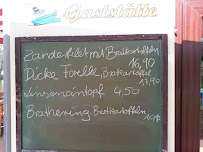 Gaststätte
Zanderfilet mit Bratkartoffeln
16,90
Dicke Forelle, Bratkartoffel
17,90
Linseneintopf 4,50
Brathering, Bratkartoffeln